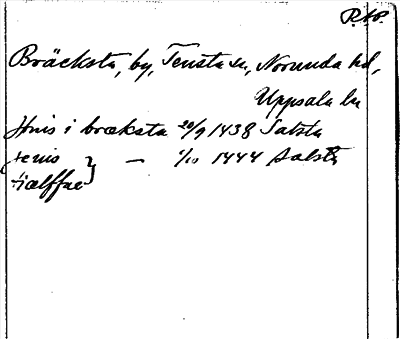 P.N.
Bräcksta, by, Tensta sn, Norunda hd,
Uppsala ln
Jönis i bræksta 20/9 1438 Salsta
jenis } — 1/10 1444 Salsta
hiælffue